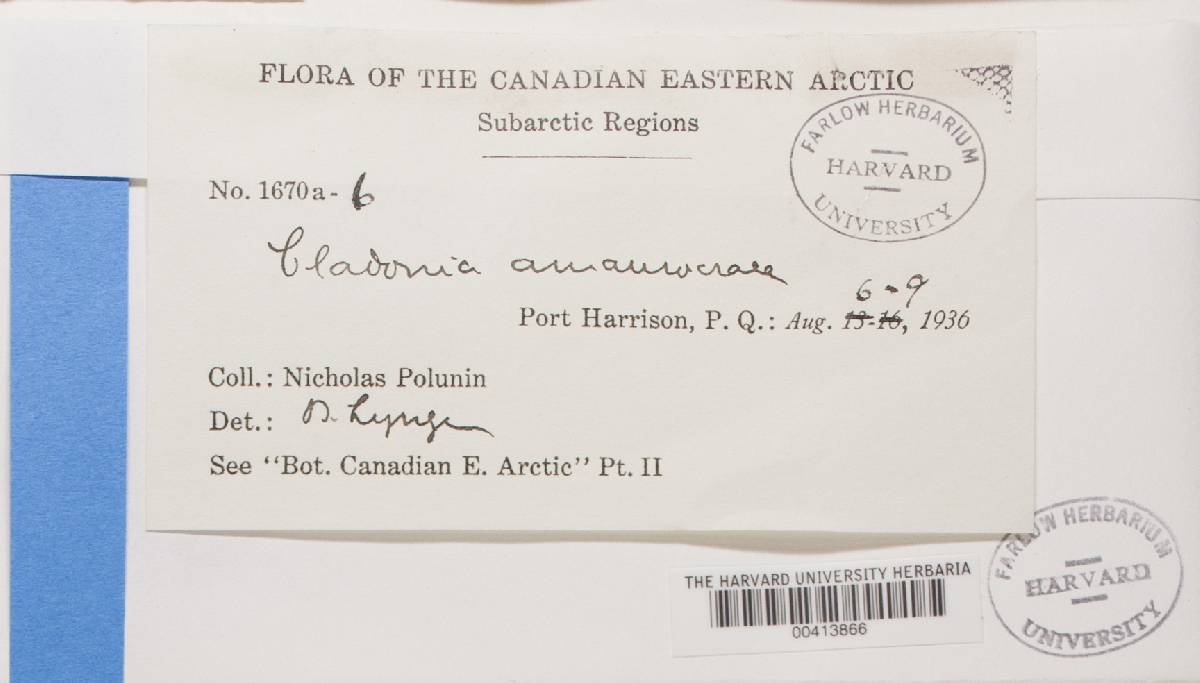 FLORA OF THE CANADIAN EASTERN ARCTIC
Subarctic Regions
FARLOW HERBARIUM
HARVARD
UNIVERSITY
No. 1670a - 6
Cladonia amaurocraea
6-9
Port Harrison, P. Q.: Aug. 13-16, 1936
Coll.: Nicholas Polunin
Det.: B. Lynge
See "Bot. Canadian E. Arctic" Pt. II
FARLOW HERBARIUM
HARVARD
UNIVERSITY
THE HARVARD UNIVERSITY HERBARIA
00413866